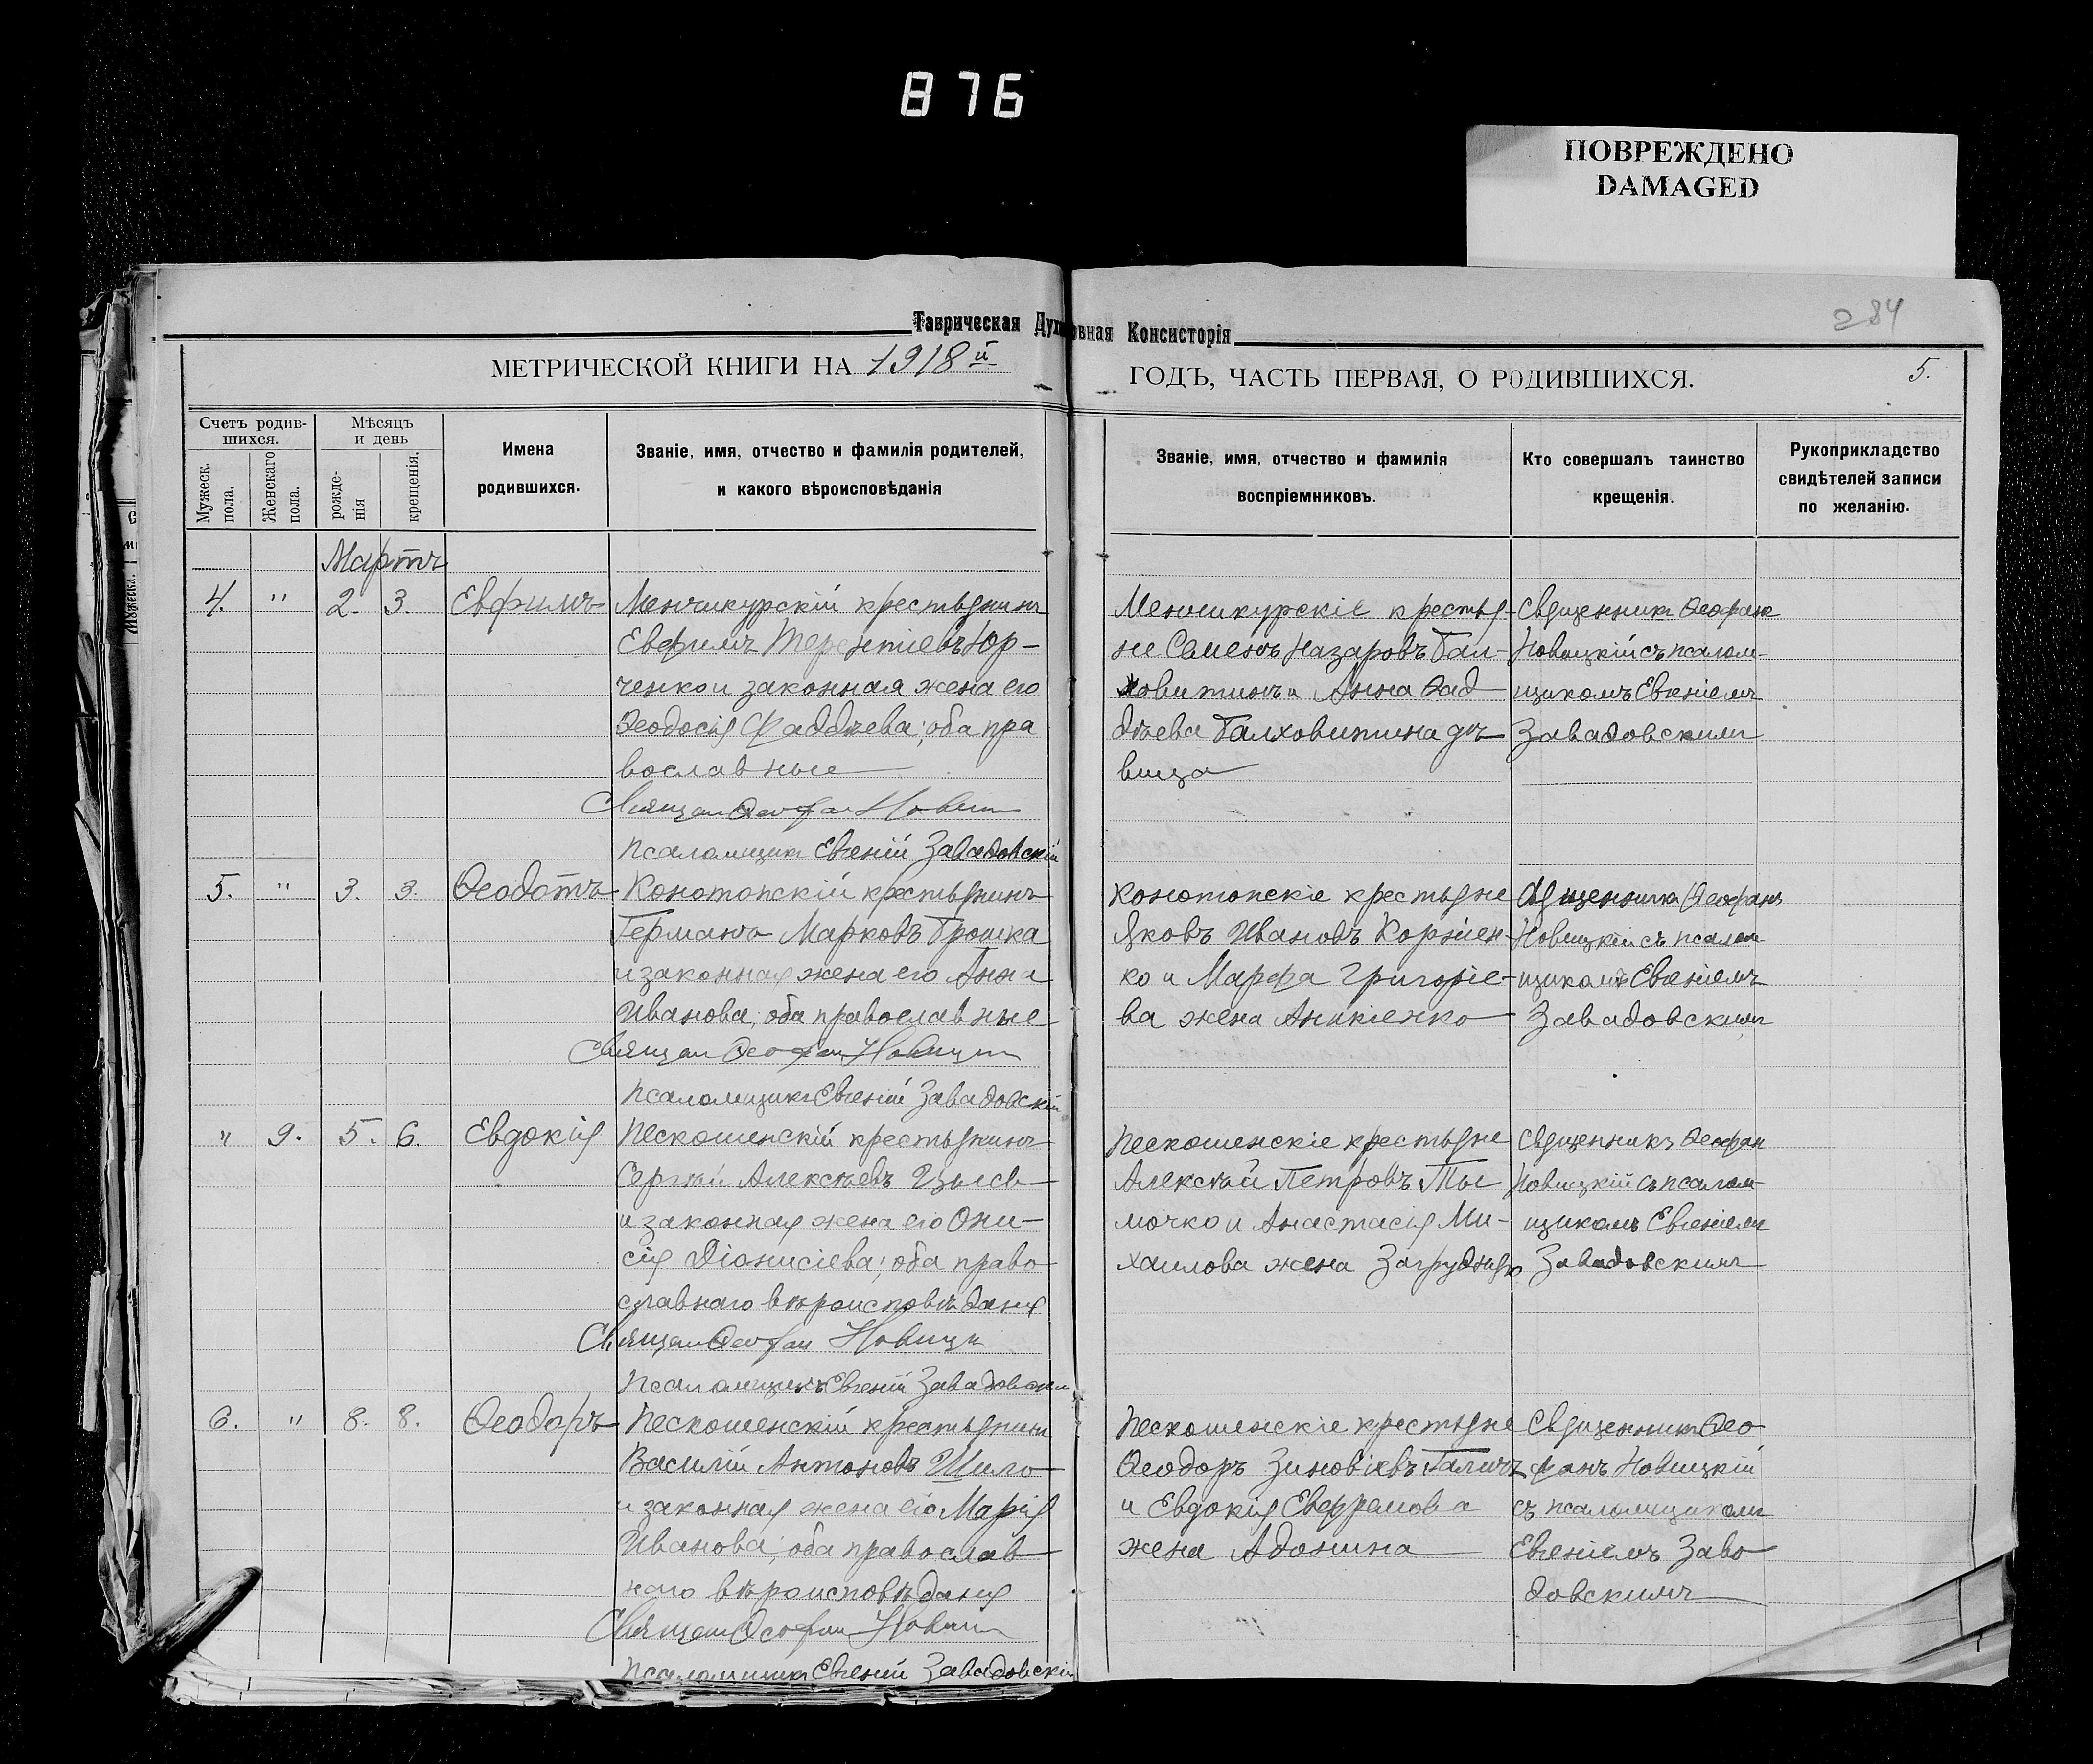 876
ПОВРЕЖДЕНО
DAMAGED
284
Таврическая Духовная Консисторія
МЕТРИЧЕСКОЙ КНИГИ НА 1918й ГОДЪ, ЧАСТЬ ПЕРВАЯ, О РОДИВШИХСЯ.
5.
Счетъ родив-
шихся.
Мужеск.
пола.
Женскаго
пола.
Мѣсяцъ
и день
рожде-
нія
крещенія.
Имена
родившихся.
Званіе, имя, отчество и фамилія родителей,
и какого вѣроисповѣданія
Званіе, имя, отчество и фамилія
воспріемниковъ.
Кто совершалъ таинство
крещенія.
Рукоприкладство
свидѣтелей записи
по желанію.
Мартъ
4. " 2. 3. Евфимъ
Менчикурскій крестьянинъ
Евфимъ Терентіевъ Юр-
ченко и законная жена его
Ѳеодосія Фаддѣева; оба пра
вославные
Священ Ѳеофан Новиц
Псаломщикъ Евгеній Завадовскій
Менчикурскіе крестья-
не Семенъ Назаровъ Бал-
ховитинъ и Анна Ѳад
дѣева Балховитина дѣ
вица
Священникъ Ѳеофанъ
Новицкій съ псалом-
щикомъ Евгеніемъ
Завадовскимъ
5. " 3. 3. Ѳеодотъ
Конотопскій крестьянинъ
Германъ Марковъ Брошка
и законная жена его Анна
Иванова; оба православные
Священ Ѳеофан Новицк
Псаломщикъ Евгеній Завадовскій
Конотопскіе крестьяне
Яковъ Ивановъ Корніен-
ко и Марфа Григоріе-
ва жена Аникіенко
Священникъ Ѳеофанъ
Новицкій съ псалом
щикомъ Евгеніемъ
Завадовскимъ
" 9. 5. 6. Евдокія
Пескошенскій крестьянинъ
Сергѣй Алексѣевъ Цысь
и законная жена его Они-
сія Діонисіева; оба право
славнаго вѣроисповѣданія
Священ Ѳеофан Новицк
Псаломщикъ Евгеній Завадовскій
Пескошенскіе крестьяне
Алексѣй Петровъ Ты
мочко и Анастасія Ми-
хаилова жена
Священникъ Ѳеофан
Новицкій съ псалом-
щикомъ Евгеніемъ
Завадовскимъ
6. " 8. 8. Ѳеодоръ
Пескошенскій крестьянинъ
Василій Антоновъ Шило
и законная жена его Марія
Иванова; оба православ
наго вѣроисповѣданія
Священ Ѳеофан Новиц
Псаломщикъ Евгеній Завадовскій
Пескошенскіе крестьяне
Ѳеодоръ Зиновіевъ Галичъ
и Евдокія Евфремова
жена Адонина
Священникъ Ѳео
фанъ Новицкій
съ псаломщикомъ
Евгеніемъ Заво
довскимъ